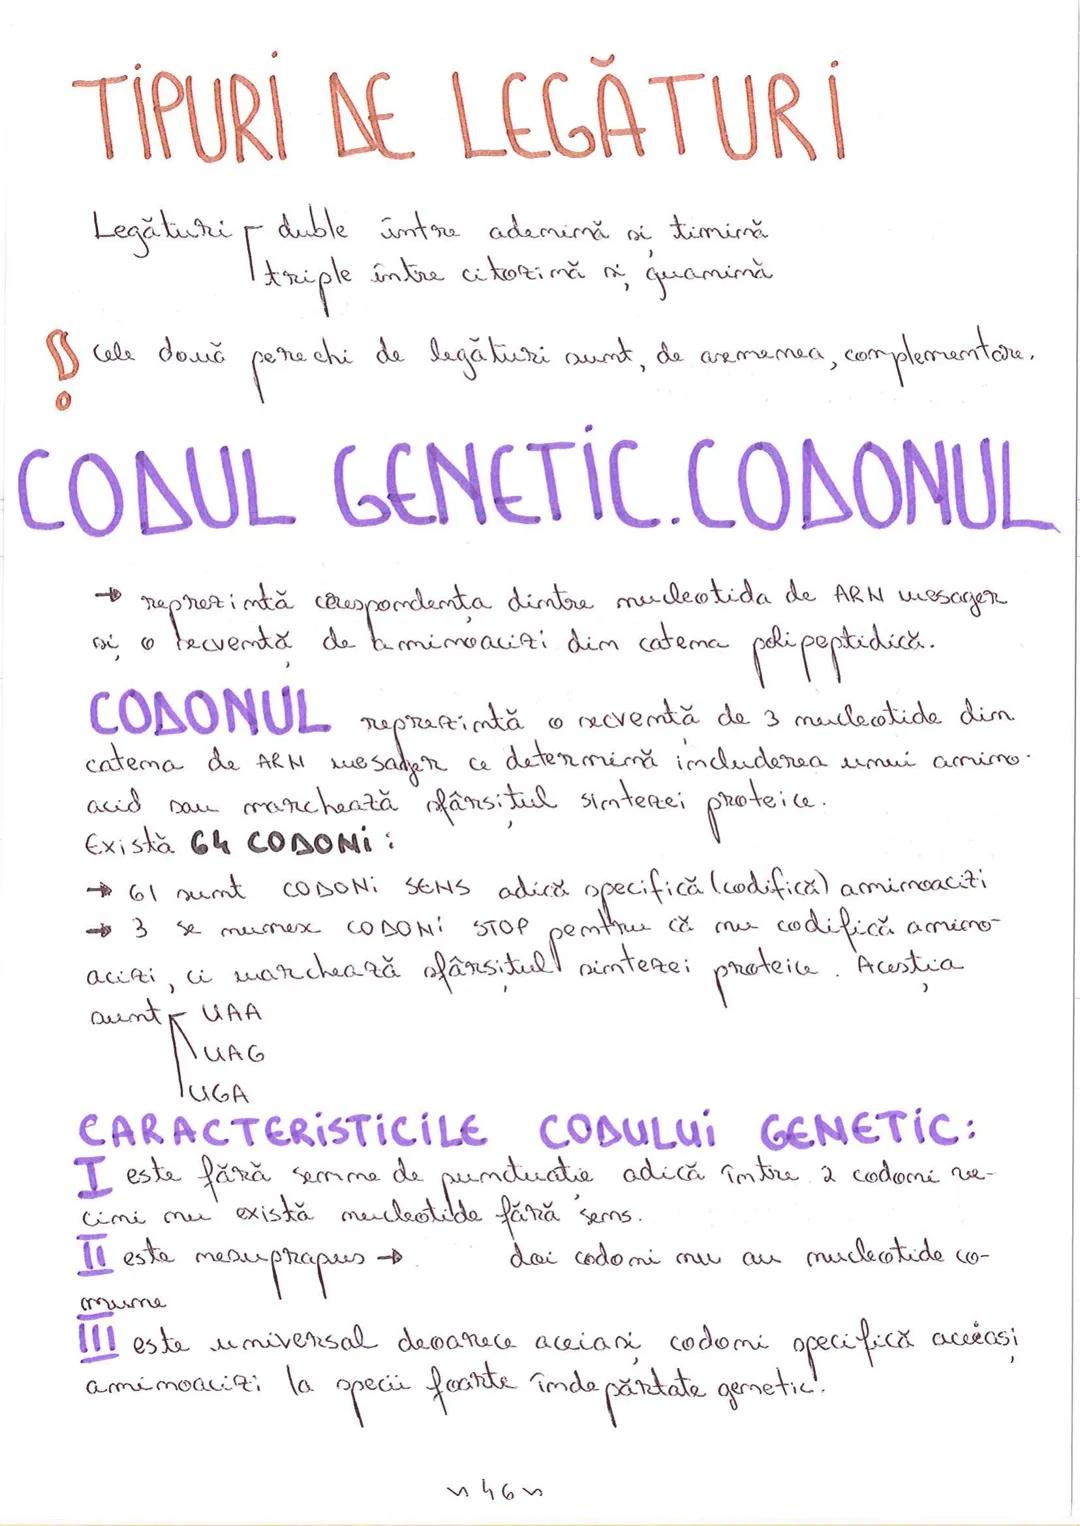 TIPURI DE LEGĂTURI
Legături duble între adenină și timină
triple între citozină și guanină
! Cele două perechi de legături sunt, de asemenea, complementare.
CODUL GENETIC. CODONUL
→ reprezintă corespondența dintre nucleotida de ARN mesager
și o secvență de aminoacizi din catena polipeptidică.
CODONUL reprezintă o secvență de 3 nucleotide din
catena de ARN mesager ce determină includerea unui amino-
acid sau marchează sfârșitul sintezei proteice.
Există 64 CODONI:
→ 61 sunt CODONI SENS adică specifică (codifică) aminoacizi
→ 3 se numesc CODONI STOP pentru că nu codifică amino-
acizi, ci marchează sfârșitul sintezei proteice. Aceștia
sunt UAA
UAG
UGA
CARACTERISTICILE CODULUI GENETIC:
I este fără semne de punctuație adică între 2 codoni ve-
cini nu există nucleotide fără sens.
II este nesuprapus → doi codoni nu au nucleotide co-
mune
III este universal deoarece aceiași codoni specifică aceeași
aminoacizi la specii foarte îndepărtate genetic.
~ 46 ~